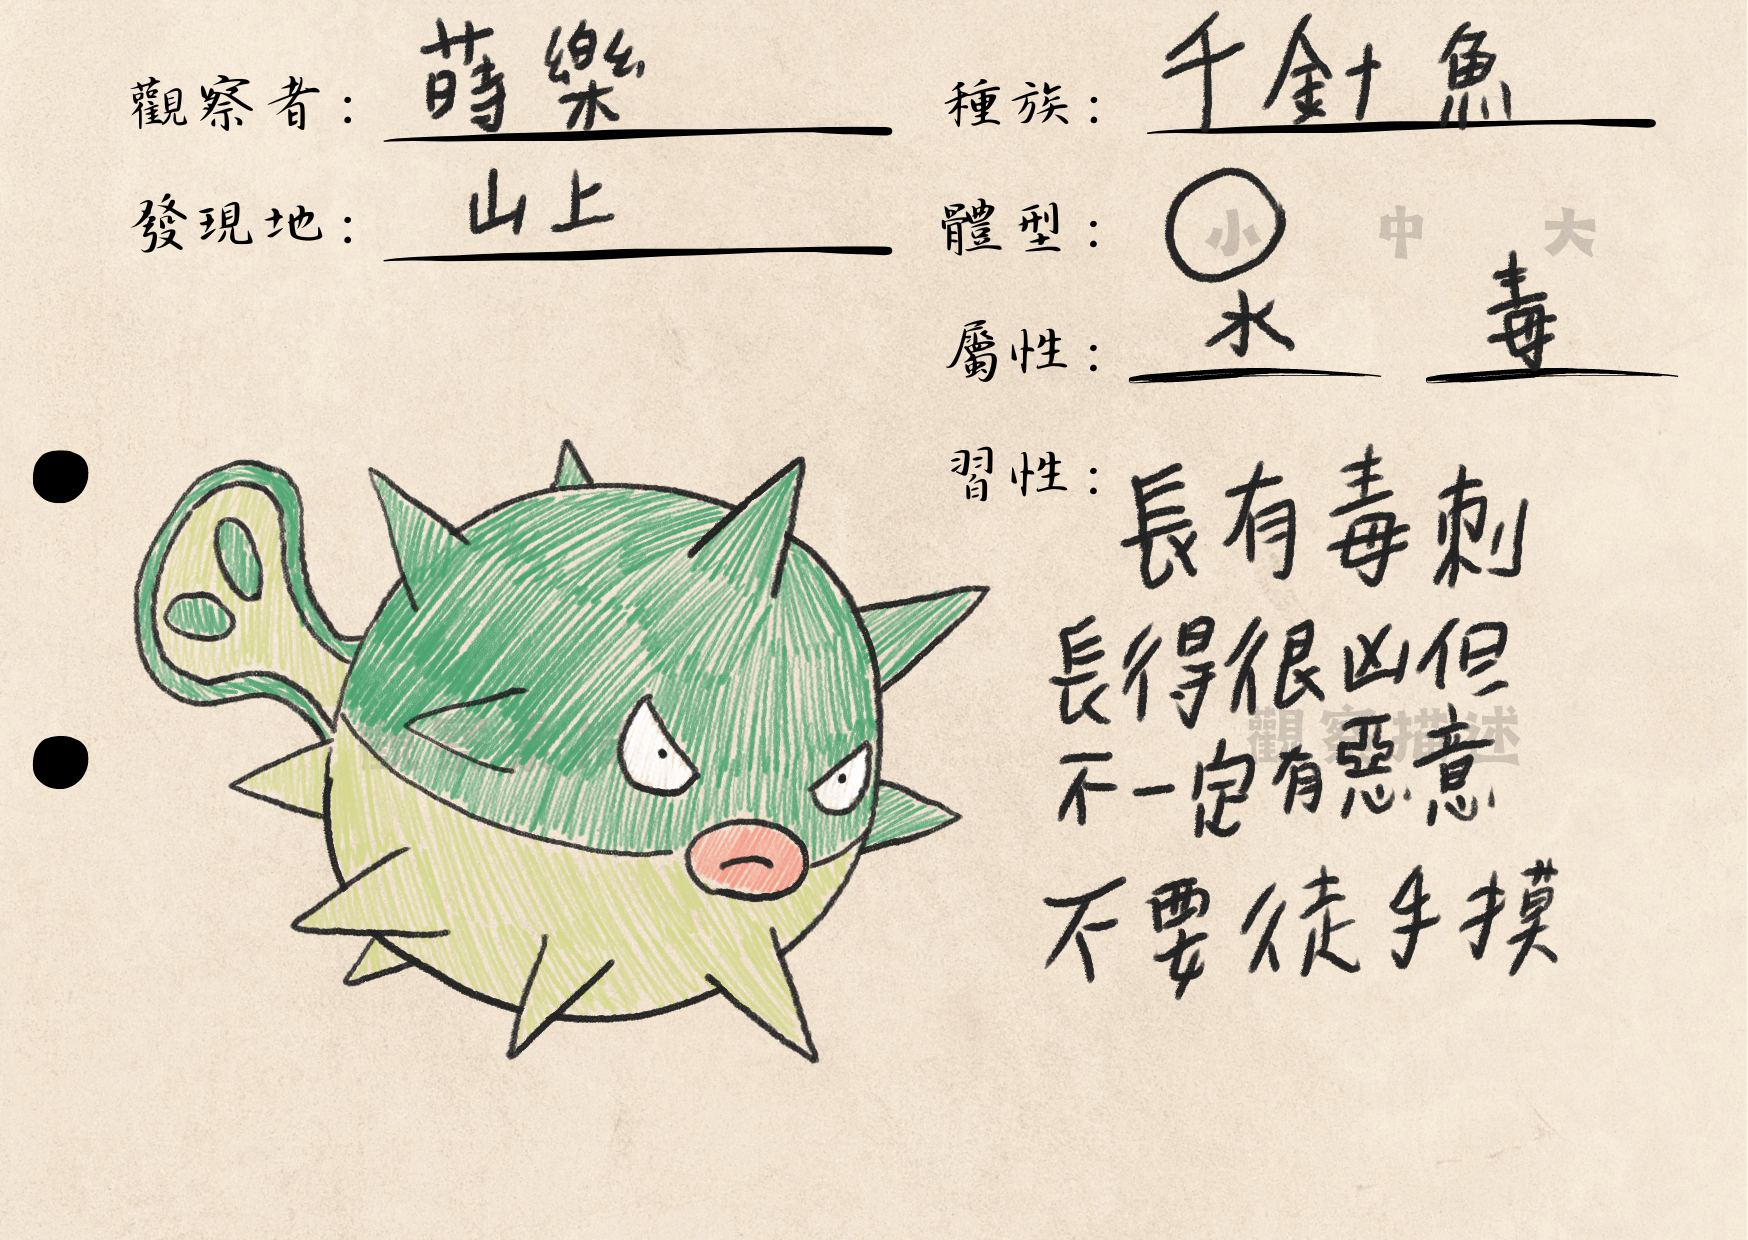 觀察者：蒔樂
種族：千針魚
發現地：山上
體型：小 中 大
屬性：水 毒
習性：長有毒刺
長得很凶但
觀察描述
不一定有惡意
不要徒手摸